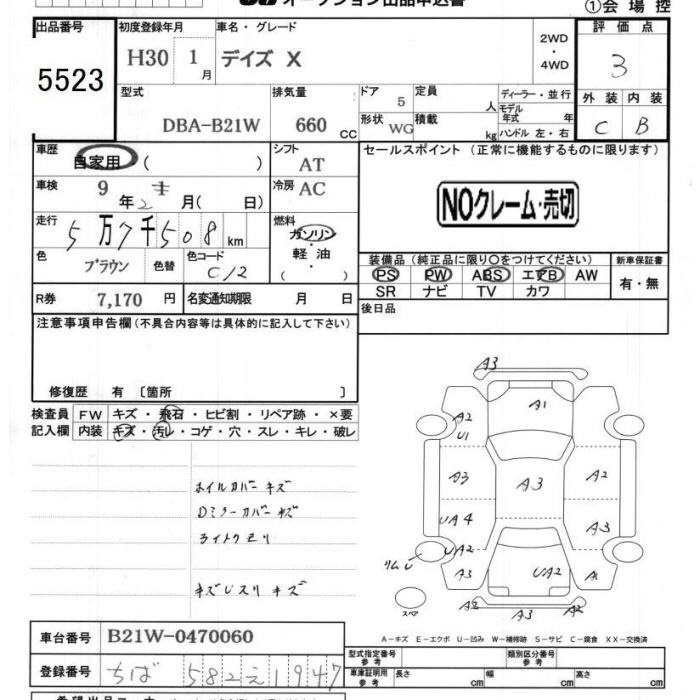 オークション出品申込書
①会場控
出品番号 5523
初度登録年月 H30 1月
車名・グレード デイズ X
2WD・4WD
評価点 3
型式 DBA-B21W
排気量 660 CC
ドア 5
形状 WG
定員 人
積載 kg
ディーラー・並行
モデル年式 年
ハンドル 左・右
外装 内装
C B
車歴 自家用 ( )
シフト AT
車検 9年2月( 日)
冷房 AC
走行 5万7千508km
燃料 ガソリン・軽油・( )
色 ブラウン 色替 色コード C12
R券 7,170円 名変通知期限 月 日
セールスポイント (正常に機能するものに限ります)
NOクレーム・売切
装備品 (純正品に限り〇をつけてください) 新車保証書
PS PW ABS エアB AW 有・無
SR ナビ TV カワ
後日品
注意事項申告欄 (不具合内容等は具体的に記入して下さい)
修復歴 有 〔箇所 〕
検査員記入欄
FW キズ・飛石・ヒビ割・リペア跡・×要
内装 キズ・汚レ・コゲ・穴・スレ・キレ・破レ
ホイルカバー キズ
Dミラーカバー キズ
ライトクモリ
キズUスリ キズ
A3
A1
A2
U1
A3
A3
A2
UA4
A3
UA2
リムU
A3
UA2
A1
スペア
A2
A3
A2
A-キズ E-エクボ U-凹み W-補修跡 S-サビ C-腐食 XX-交換済
車台番号 B21W-0470060
登録番号 ちば 582 え 1947
型式指定番号 参考
類別区分番号 参考
車庫証明用 参考 長さ cm 幅 cm 高さ cm